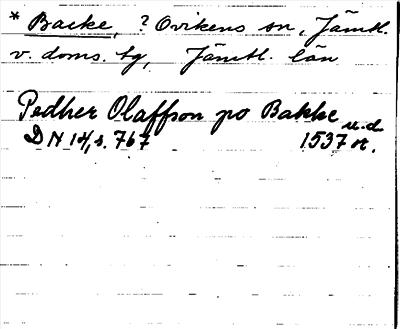 * Backe, ? Ovikens sn, Jämtl.
v. doms. tg, Jämtl. län
Pedher Olaffson po Bakke u.d.
DN 14, s. 767 1537 or.